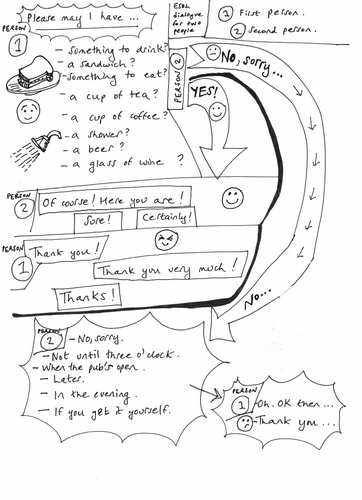 Please may I have ...
PERSON
1
- something to drink?
- a sandwich?
- something to eat?
- a cup of tea?
- a cup of coffee?
- a shower?
- a beer?
- a glass of wine?
ESOL
dialogue
for two
people
1 First person.
2 Second person.
PERSON 2
No, sorry...
YES!
PERSON
2
Of course! Here you are!
Sure!
Certainly!
PERSON
1
Thank you!
Thank you very much!
Thanks!
No...
PERSON
2
- No, sorry.
- Not until three o'clock.
- When the pub's open.
- Later.
- In the evening.
- If you get it yourself.
PERSON
1
- Oh. OK then...
- Thank you...